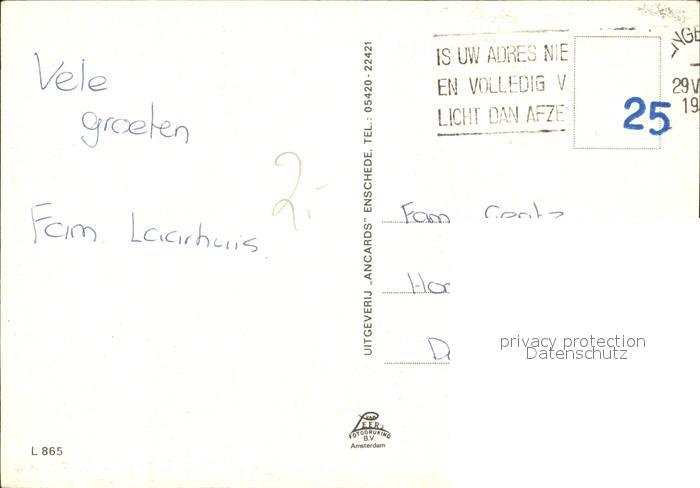 Vele
groeten
Fam. Laarhuis.
2,-
L 865
UITGEVERIJ „ANCARDS" ENSCHEDE, TEL.: 05420 - 22421
VAN
LEER
FOTODRUKIND
B.V.
Amsterdam
IS UW ADRES NIE
EN VOLLEDIG V
LICHT DAN AFZE
29 V
19
25
Fam
privacy protection
Datenschutz